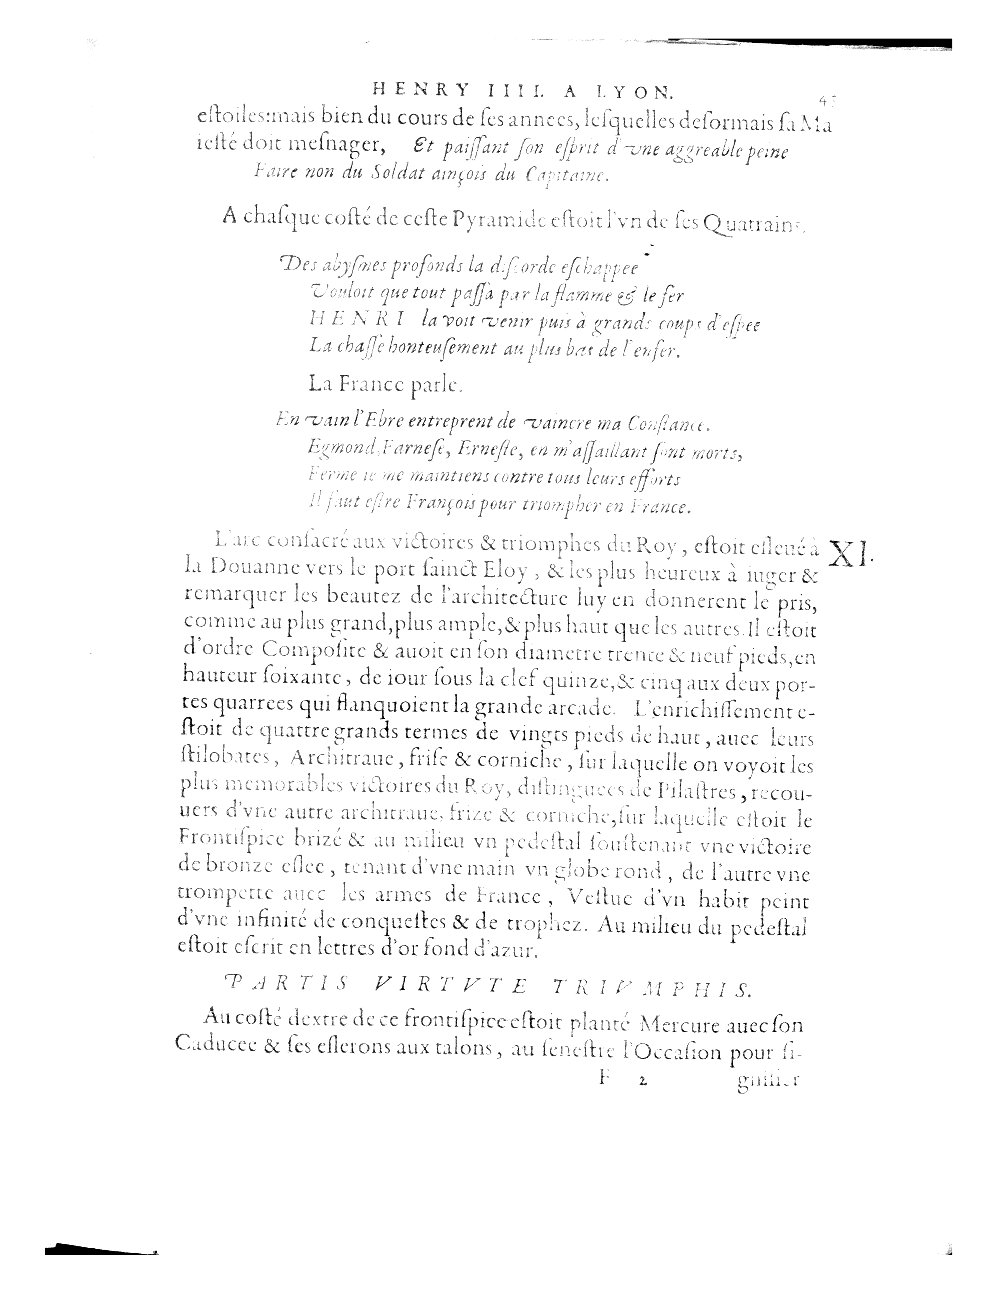 HENRY IIII. A LYON.
estoiles:mais bien du cours de ses annees, lesquelles desormais sa Ma
iesté doit mesnager, Et paissant son esprit d'vne aggreable peine
Faire non du Soldat ainçois du Capitaine.
A chasque costé de ceste Pyramide estoit l'vn de ses Quatrains.
Des abysmes profonds la discorde eschappee
Vouloit que tout passa par la flamme & le fer
HENRI la voit venir puis à grands coups d'espee
La chasse honteusement au plus bas de l'enfer.
La France parle.
En vain l'Ebre entreprent de vaincre ma Constance.
Egmond, Farnese, Erneste, en m'assaillant sont morts,
Ferme ie me maintiens contre tous leurs efforts
Il faut estre François pour triompher en France.
L'arc consacré aux victoires & triomphes du Roy, estoit esleué à
XI.
la Douanne vers le port sainct Eloy, & les plus heureux à iuger &
remarquer les beautez de l'architecture luy en donnerent le pris,
comme au plus grand, plus ample, & plus haut que les autres. Il estoit
d'ordre Composite & auoit en son diametre trente & neuf pieds, en
hauteur soixante, de iour sous la clef quinze, & cinq aux deux por-
tes quarrees qui flanquoient la grande arcade. L'enrichissement e-
stoit de quattre grands termes de vingts pieds de haut, auec leurs
stilobates, Architraue, frise & corniche, sur laquelle on voyoit les
plus memorables victoires du Roy, distinguees de Pilastres, recou-
uers d'vne autre architraue, frize & corniche, sur laquelle estoit le
Frontispice brizé & au milieu vn pedestal soustenant vne victoire
de bronze eslee, tenant d'vne main vn globe rond, de l'autre vne
trompette auec les armes de France, Vestue d'vn habit peint
d'vne infinité de conquestes & de trophez. Au milieu du pedestal
estoit escrit en lettres d'or fond d'azur.
PARTIS VIRTVTE TRIVMPHIS.
Au costé dextre de ce frontispice estoit planté Mercure auec son
Caducee & ses eslerons aux talons, au senestre l'Occasion pour si-
F 2 gnifier